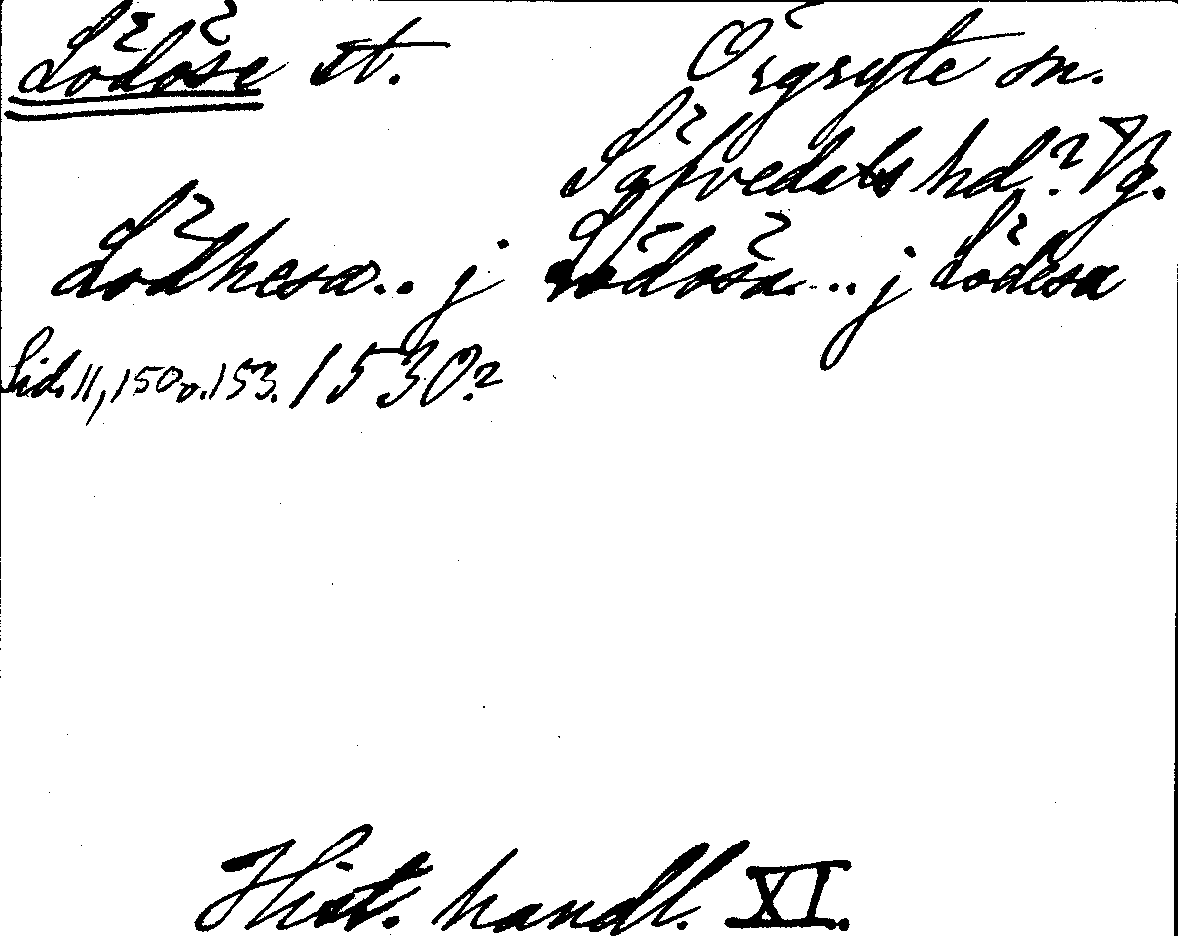 Lödöse st. Örgryte sn.
Säfvedals hd.? Vg.
Lödhesa.. j Lödosa... j Lödesa
Sid. 11, 150 o. 153. 1530?
Hist. handl. XI.